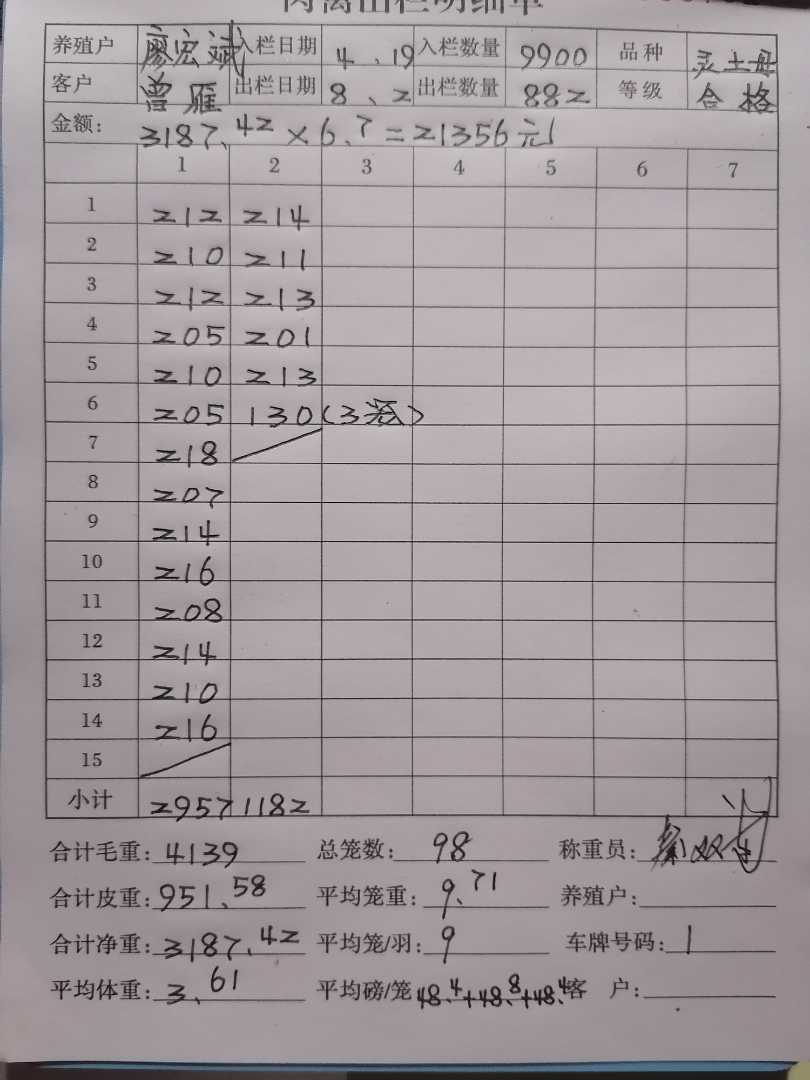 肉禽出栏明细单
养殖户 廖宏斌 入栏日期 4、19 入栏数量 9900 品种 灵土母
客户 曾雁 出栏日期 8、2 出栏数量 882 等级 合格
金额: 3187.42×6.7=21356元
1 2 3 4 5 6 7
1 212 214
2 210 211
3 212 213
4 205 201
5 210 213
6 205 130(3笼)
7 218
8 207
9 214
10 216
11 208
12 214
13 210
14 216
15
小计 2957 1182
合计毛重: 4139 总笼数: 98 称重员:
合计皮重: 951.58 平均笼重: 9.71 养殖户:
合计净重: 3187.42 平均笼/羽: 9 车牌号码: 1
平均体重: 3.61 平均磅/笼 48.4+48.8+48.4 客 户: